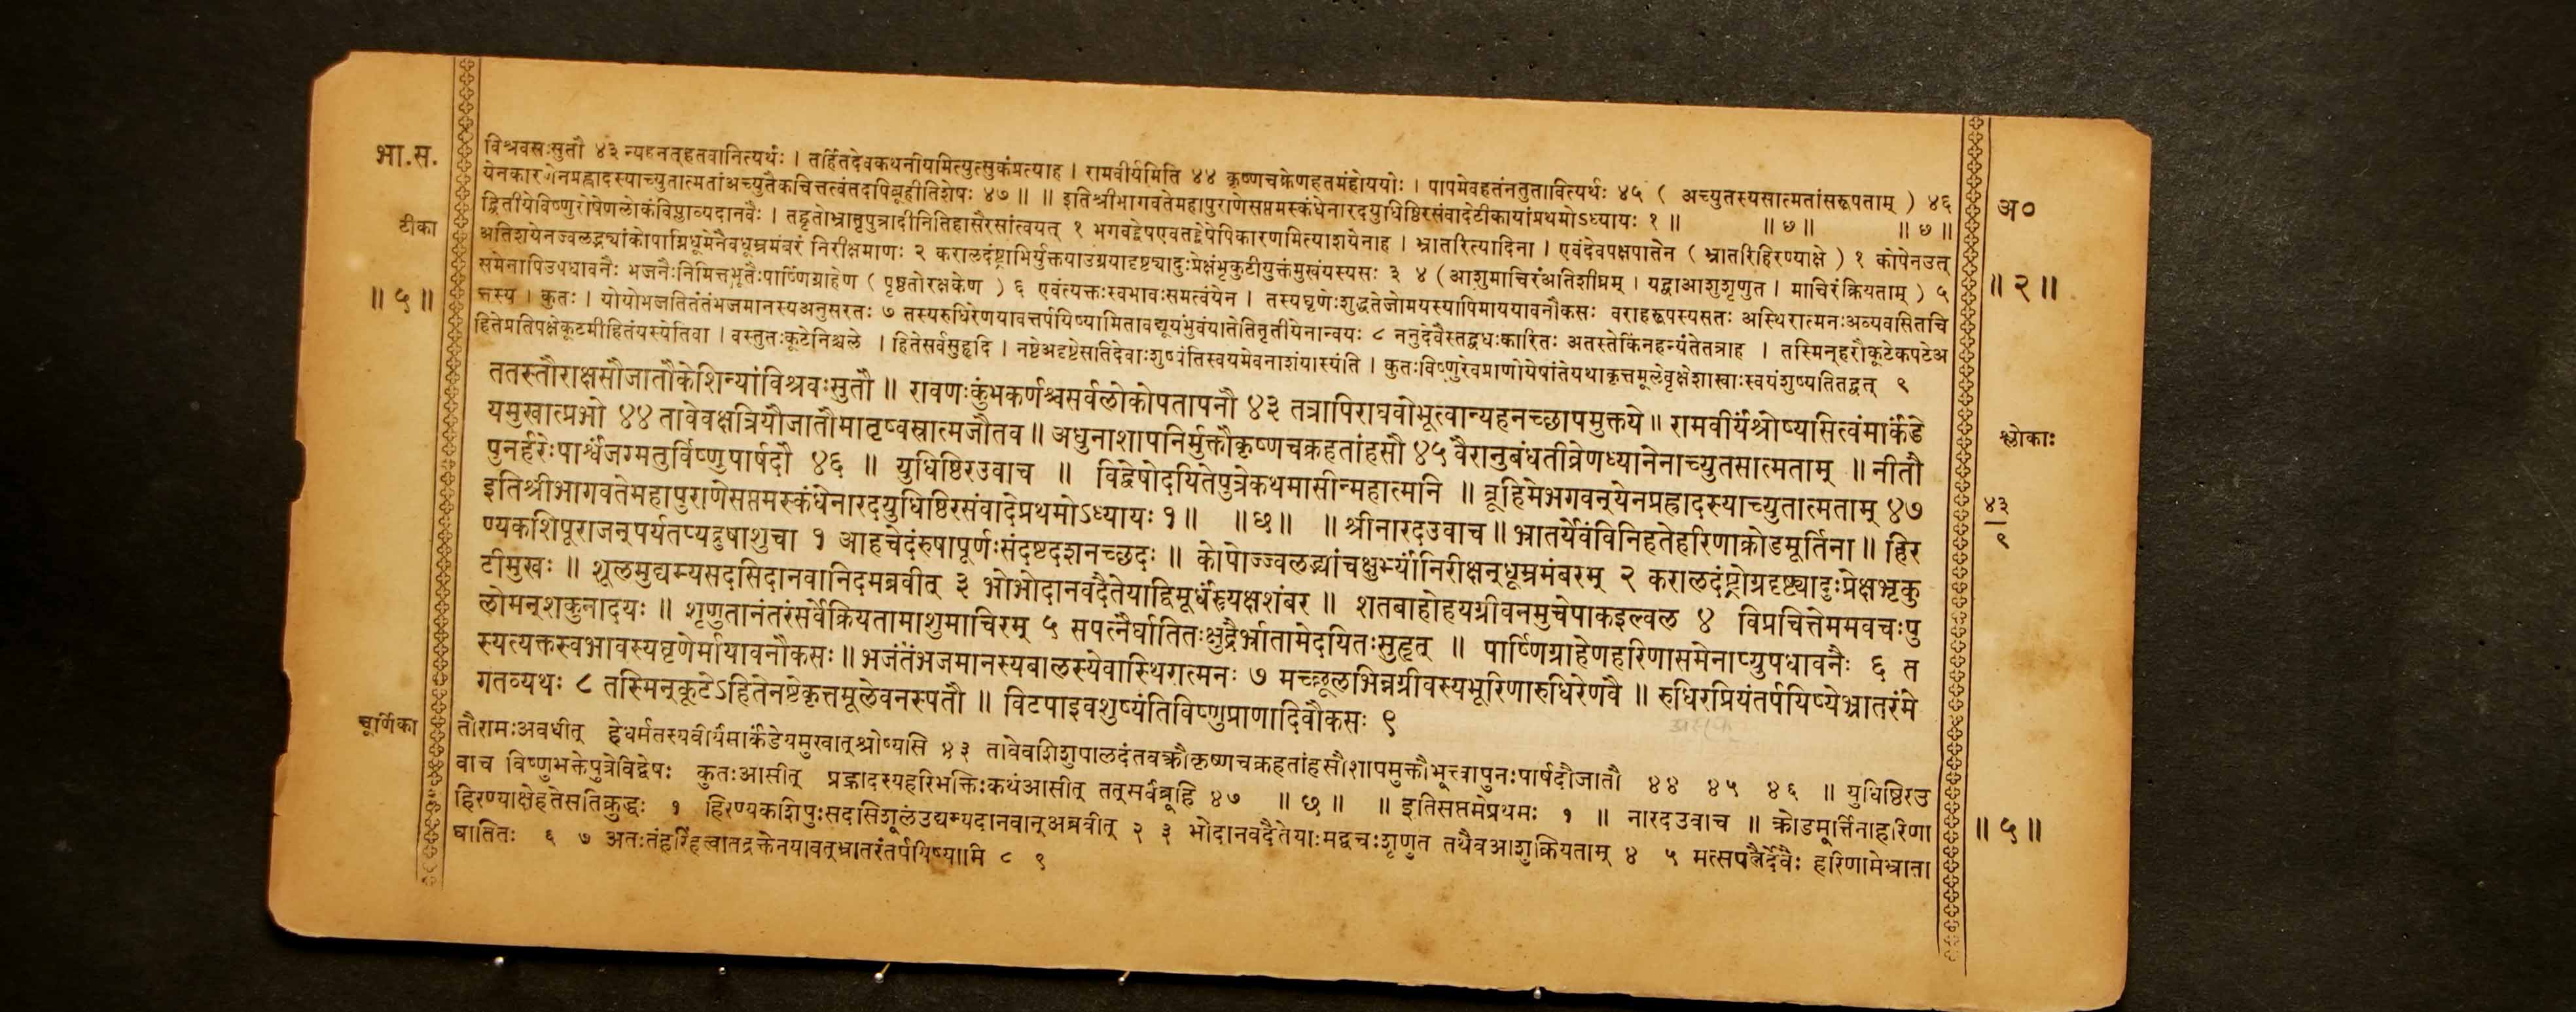 भा.स.
टीका
॥ ५ ॥
विश्रवसःसुतौ ४३ न्यहनत्हतवानित्यर्थः । तर्हितदेवकथनीयमित्युत्सुकंप्रत्याह । रामवीर्यमिति ४४ कृष्णचक्रेणहतमंहोययोः । पापमेवहतंनतुतावित्यर्थः ४५ ( अच्युतस्यसात्मतांसरूपताम् ) ४६
येनकारणेनप्रह्लादस्याच्युतात्मतांअच्युतैकचित्तत्वंतदपिब्रूहीतिशेषः ४७ ॥ ॥ इतिश्रीभागवतेमहापुराणेसप्तमस्कंधेनारदयुधिष्ठिरसंवादेटीकायांप्रथमोऽध्यायः १ ॥ ॥ ७ ॥ ॥ ७ ॥
द्वितीयेविष्णुरोषेणलोकंविप्लाव्यदानवैः । तद्धतोभ्रातृपुत्रादीनितिहासैरसांत्वयत् १ भगवद्द्वेषएवतद्द्वेषेपिकारणमित्याशयेनाह । भ्रातरित्यादिना । एवंदेवपक्षपातेन ( भ्रातरिहिरण्याक्षे ) १ कोपेनउत्
अतिशयेनज्वलद्भ्यांकोपाग्निधूमेनैवधूम्रमंबरं निरीक्षमाणः २ करालदंष्ट्राभिर्युक्तयाउग्रयादृष्ट्यादुःप्रेक्षंभृकुटीयुक्तंमुखंयस्यसः ३ ४ ( आशुमाचिरंअतिशीघ्रम् । यद्वाआशुशृणुत । माचिरंक्रियताम् ) ५
समेनापिउपधावनैः भजनैःनिमित्तभूतैःपार्ष्णिग्राहेण ( पृष्ठतोरक्षकेण ) ६ एवंत्यक्तःस्वभावःसमत्वंयेन । तस्यघृणेःशुद्धतेजोमयस्यापिमाययावनौकसः वराहरूपस्यसतः अस्थिरात्मनःअव्यवसितचि
त्तस्य । कुतः । योयोभजतितंतंभजमानस्यअनुसरतः ७ तस्यरुधिरेणयावत्तर्पयिष्यामितावद्यूयंभुवंयातेतितृतीयेनान्वयः ८ ननुदेवैस्तद्वधःकारितः अतस्तेकिंनहन्यंतेतत्राह । तस्मिन्हरौकूटेकपटेअ
हितेप्रतिपक्षेकूटमीहितंयस्येतिवा । वस्तुतःकूटेनिश्चले । हितेसर्वसुहृदि । नष्टेअदृष्टेसतिदेवाःशुष्यंतिस्वयमेवनाशंयास्यंति । कुतःविष्णुरेवप्राणोयेषांतेयथाकृत्तमूलेवृक्षेशाखाःस्वयंशुष्यतितद्वत् ९
ततस्तौराक्षसौजातौकेशिन्यांविश्रवःसुतौ ॥ रावणःकुंभकर्णश्चसर्वलोकोपतापनौ ४३ तत्रापिराघवोभूत्वान्यहनच्छापमुक्तये ॥ रामवीर्यंश्रोष्यासित्वंमार्कंडे
यमुखात्प्रभो ४४ तावेवक्षत्रियौजातौमातृष्वस्रात्मजौतव ॥ अधुनाशापनिर्मुक्तौकृष्णचक्रहतांहसौ ४५ वैरानुबंधतीव्रेणध्यानेनाच्युतसात्मताम् ॥ नीतौ
पुनर्हरेःपार्श्वंजग्मतुर्विष्णुपार्षदौ ४६ ॥ युधिष्ठिरउवाच ॥ विद्वेषोदयितेपुत्रेकथमासीन्महात्मनि ॥ ब्रूहिमेभगवन्येनप्रह्लादस्याच्युतात्मताम् ४७
इतिश्रीभागवतेमहापुराणेसप्तमस्कंधेनारदयुधिष्ठिरसंवादेप्रथमोऽध्यायः १ ॥ ॥ छ ॥ ॥ श्रीनारदउवाच ॥ भ्रातर्येवंविनिहतेहरिणाक्रोडमूर्तिना ॥ हिर
ण्यकशिपूराजन्पर्यतप्यद्रुषाशुचा १ आहचेदंरुषापूर्णःसंदष्टदशनच्छदः ॥ कोपोज्ज्वलद्भ्यांचक्षुर्भ्यांनिरीक्षन्धूम्रमंबरम् २ करालदंष्ट्रोग्रदृष्ट्यादुःप्रेक्षभृकु
टीमुखः ॥ शूलमुद्यम्यसदसिदानवानिदमब्रवीत् ३ भोभोदानवदैतेयाद्विमूर्धंस्त्र्यक्षशंबर ॥ शतबाहोहयग्रीवनमुचेपाकइल्वल ४ विप्रचित्तेममवचःपु
लोमन्शकुनादयः ॥ शृणुतानंतरंसर्वेक्रियतामाशुमाचिरम् ५ सपत्नैर्घातितःक्षुद्रैर्भ्रातामेदयितःसुहृत् ॥ पार्ष्णिग्राहेणहरिणासमेनाप्युपधावनैः ६ त
स्यत्यक्तस्वभावस्यघृणेर्मायावनौकसः ॥ भजंतंभजमानस्यबालस्येवास्थिरात्मनः ७ मच्छूलभिन्नग्रीवस्यभूरिणारुधिरेणवै ॥ रुधिरप्रियंतर्पयिष्येभ्रातरंमे
गतव्यथः ८ तस्मिन्कूटेऽहितेनष्टेकृत्तमूलेवनस्पतौ ॥ विटपाइवशुष्यंतिविष्णुप्राणादिवौकसः ९
चूर्णिका
तौरामःअवधीत् हेधर्मतस्यवीर्यंमार्कंडेयमुखात्श्रोष्यसि ४३ तावेवशिशुपालदंतवक्रौकृष्णचक्रहतांहसौशापमुक्तौभूत्वापुनःपार्षदौजातौ ४४ ४५ ४६ ॥ युधिष्ठिरउ
वाच विष्णुभक्तेपुत्रेविद्वेषः कुतःआसीत् प्रह्लादस्यहरिभक्तिःकथंआसीत् तत्सर्वंब्रूहि ४७ ॥ छ ॥ ॥ इतिसप्तमेप्रथमः १ ॥ नारदउवाच ॥ क्रोडमूर्त्तिनाहरिणा
हिरण्याक्षेहतेसतिक्रुद्धः १ हिरण्यकशिपुःसदसिशूलंउद्यम्यदानवान्अब्रवीत् २ ३ भोदानवदैतेयाःमद्वचःशृणुत तथैवआशुक्रियताम् ४ ५ मत्सपत्नैर्देवैः हरिणामेभ्राता
घातितः ६ ७ अतःतंहरिंहत्वातद्रक्तेनयावत्भ्रातरंतर्पयिष्यामि ८ ९
अ०
॥ २ ॥
श्लोकाः
४३
९
॥ ५ ॥